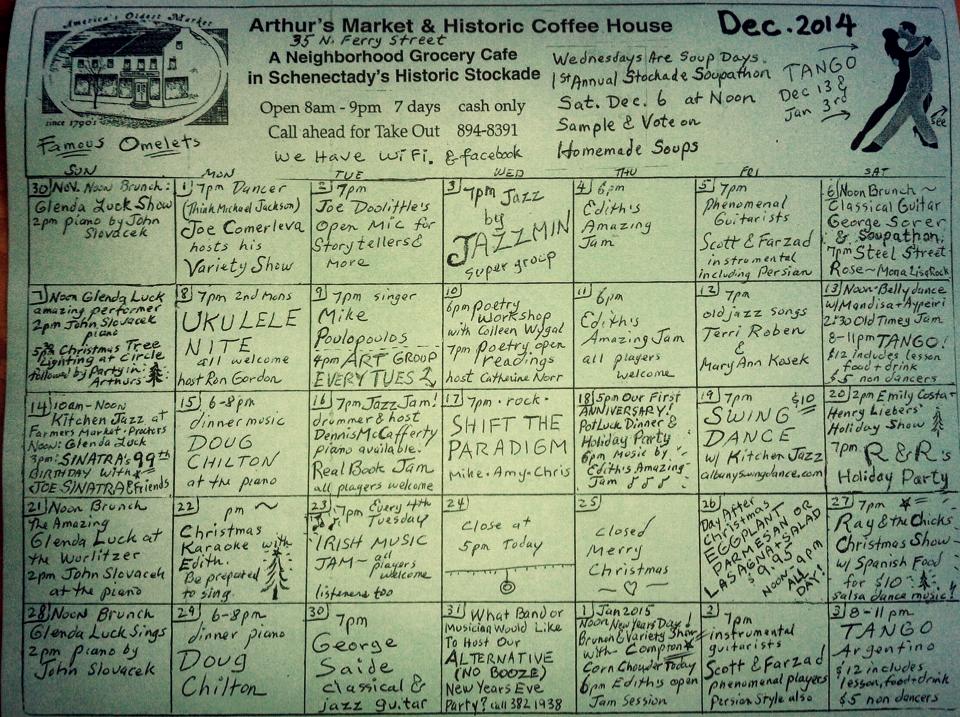 America's Oldest Market
since 1790's
Famous Omelets
Arthur's Market & Historic Coffee House
35 N. Ferry Street
A Neighborhood Grocery Cafe
in Schenectady's Historic Stockade
Open 8am - 9pm 7 days cash only
Call ahead for Take Out 894-8391
We Have WiFi. & facebook
Dec. 2014
Wednesdays Are Soup Days
1st Annual Stockade Soupathon
Sat. Dec. 6 at Noon
Sample & Vote on
Homemade Soups
TANGO
Dec 13 &
Jan 3rd
see
SUN MON TUE WED THU FRI SAT
30 Nov. Noon Brunch:
Glenda Luck Show
2pm piano by John
Slovacek
1 7pm Dancer
(Think Michael Jackson)
Joe Comerleva
hosts his
Variety Show
2 7pm
Joe Doolittle's
Open Mic for
Storytellers &
more
3 7pm Jazz
by
JAZZMIN
super group
4 6pm
Edith's
Amazing
Jam
5 7pm
Phenomenal
Guitarists
Scott & Farzad
instrumental
including Persian
6 Noon Brunch ~
Classical Guitar
George Sorer
& Soupathon;
7pm Steel Street
Rose ~ Mona Lisa Rock
7 Noon Glenda Luck
amazing performer
2pm John Slovacek
piano
5pm Christmas Tree
Lighting at Circle
followed by Party in:
Arthurs
8 7pm 2nd mons
UKULELE
NITE
all welcome
host Ron Gordon
9 7pm singer
Mike
Poulopoulos
4pm ART GROUP
EVERY TUES
10 6pm Poetry
Workshop
with Colleen Wygal
7pm Poetry open
readings
host Catherine Norr
11 6pm
Edith's
Amazing Jam
all players
welcome
12 7pm
old jazz songs
Terri Roben
&
Mary Ann Kosek
13 Noon-Bellydance
w/Mandisa + Aypeiri
2:30 Old Timey Jam
8-11pm TANGO!
$12 includes lesson
food + drink
$5 non dancers
14 10am-Noon
Kitchen Jazz at
Farmers Market-Proctors
Noon: Glenda Luck
3pm: SINATRA's 99th
BIRTHDAY WITH
JOE SINATRA & Friends
15 6-8pm
dinner music
DOUG
CHILTON
at the piano
16 7pm Jazz Jam!
drummer & host
Dennis McCafferty
piano available.
Real Book Jam
all players welcome
17 7pm · rock ·
SHIFT THE
PARADIGM
Mike · Amy · Chris
18 5pm Our First
ANNIVERSARY!
Potluck Dinner &
Holiday Party
6pm Music by
Edith's Amazing
Jam
19 7pm $10
SWING
DANCE
w/ Kitchen Jazz
albanyswingdance.com
20 2pm Emily Costa +
Henry Liebers'
Holiday Show
7pm R & R's
Holiday Party
21 Noon Brunch
The Amazing
Glenda Luck at
the Wurlitzer
2pm John Slovacek
at the piano
22 pm ~
Christmas
Karaoke with
Edith.
Be prepared
to sing.
23 7pm Every 4th
Tuesday
IRISH MUSIC
JAM ~ all
players
welcome
listeners too
24
Close at
5pm Today
25
Closed
Merry
Christmas
26
Day After
Christmas
EGGPLANT
PARMESAN OR
LASAGNA + SALAD
$9.95
NOON-9pm
ALL
DAY!
27 7pm
Ray & the Chicks
Christmas Show
w/ Spanish Food
for $10
salsa dance music!
28 Noon Brunch
Glenda Luck Sings
2pm Piano by
John Slovacek
29 6-8pm
dinner piano
Doug
Chilton
30
7pm
George
Saide
classical &
jazz guitar
31 What Band or
Musician Would Like
To Host Our
ALTERNATIVE
(NO BOOZE)
New Years Eve
Party? call 382 1938
1 Jan 2015
Noon New Years Day!
Brunch & Variety Show
with Compton
Corn Chowder Today
6pm Edith's open
Jam Session
2 7pm
instrumental
guitarists
Scott & Farzad
phenomenal players
Persian Style also
3 8-11pm
TANGO
Argentino
$12 includes
lesson, food + drink
$5 non dancers